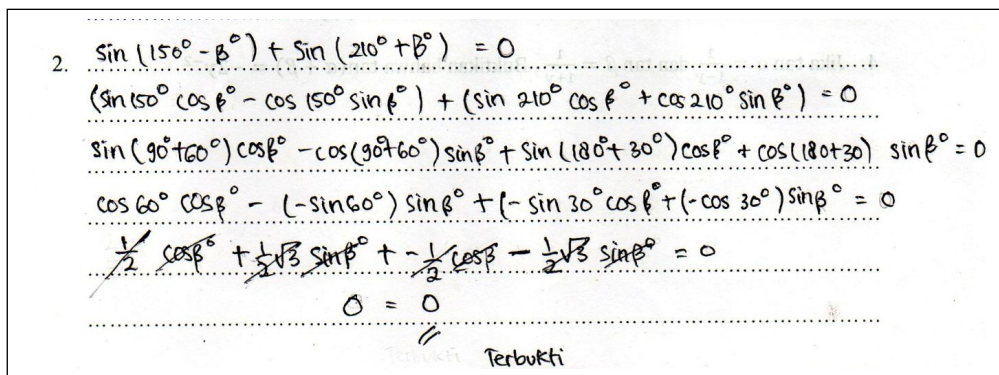 2. sin (150° - β°) + sin (210° + β°) = 0
(sin 150° cos β° - cos 150° sin β°) + (sin 210° cos β° + cos 210° sin β°) = 0
sin (90°+60°) cos β° - cos (90°+60°) sin β° + sin (180°+30°) cos β° + cos (180+30) sin β° = 0
cos 60° cos β° - (-sin 60°) sin β° + (- sin 30° cos β° + (-cos 30°) sin β° = 0
1/2 cos β° + 1/2 √3 sin β° + - 1/2 cos β - 1/2 √3 sin β° = 0
0 = 0
Terbukti